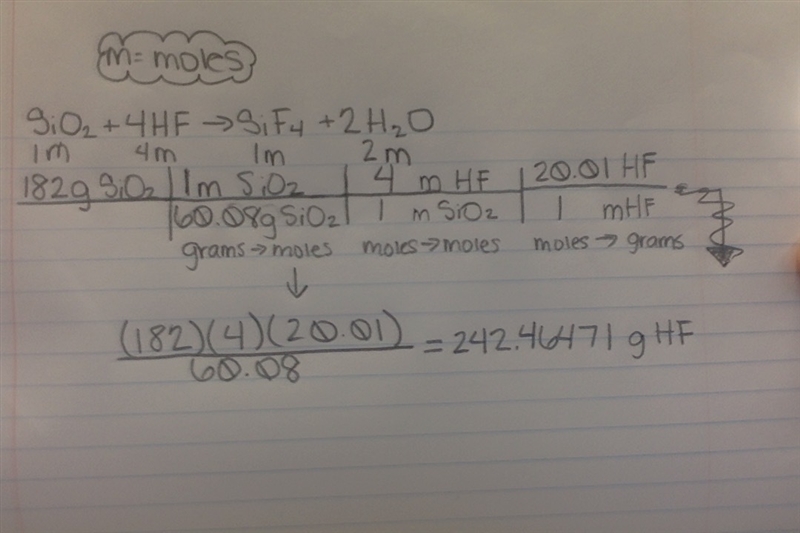 m = moles
SiO₂ + 4HF → SiF₄ + 2H₂O
1m 4m 1m 2m
182g SiO₂ | 1m SiO₂ | 4 m HF | 20.01 HF
60.08g SiO₂ | 1 m SiO₂ | 1 mHF
grams → moles moles → moles moles → grams
↓
(182)(4)(20.01) = 242.46471 g HF
60.08